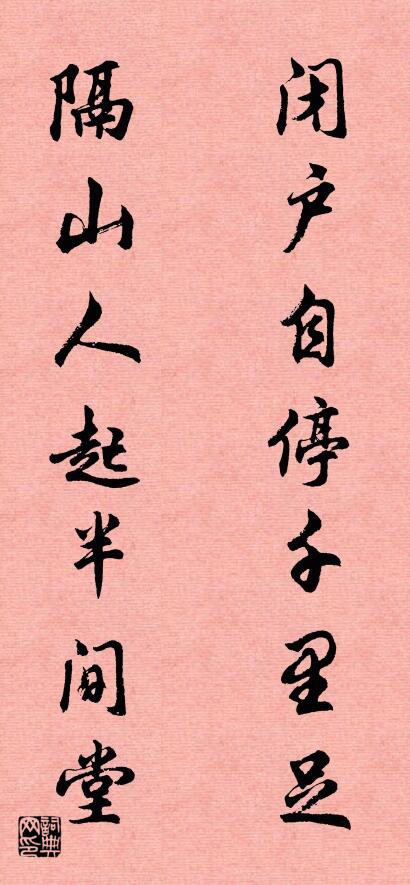 闭户自停千里足
隔山人起半间堂
词典网印